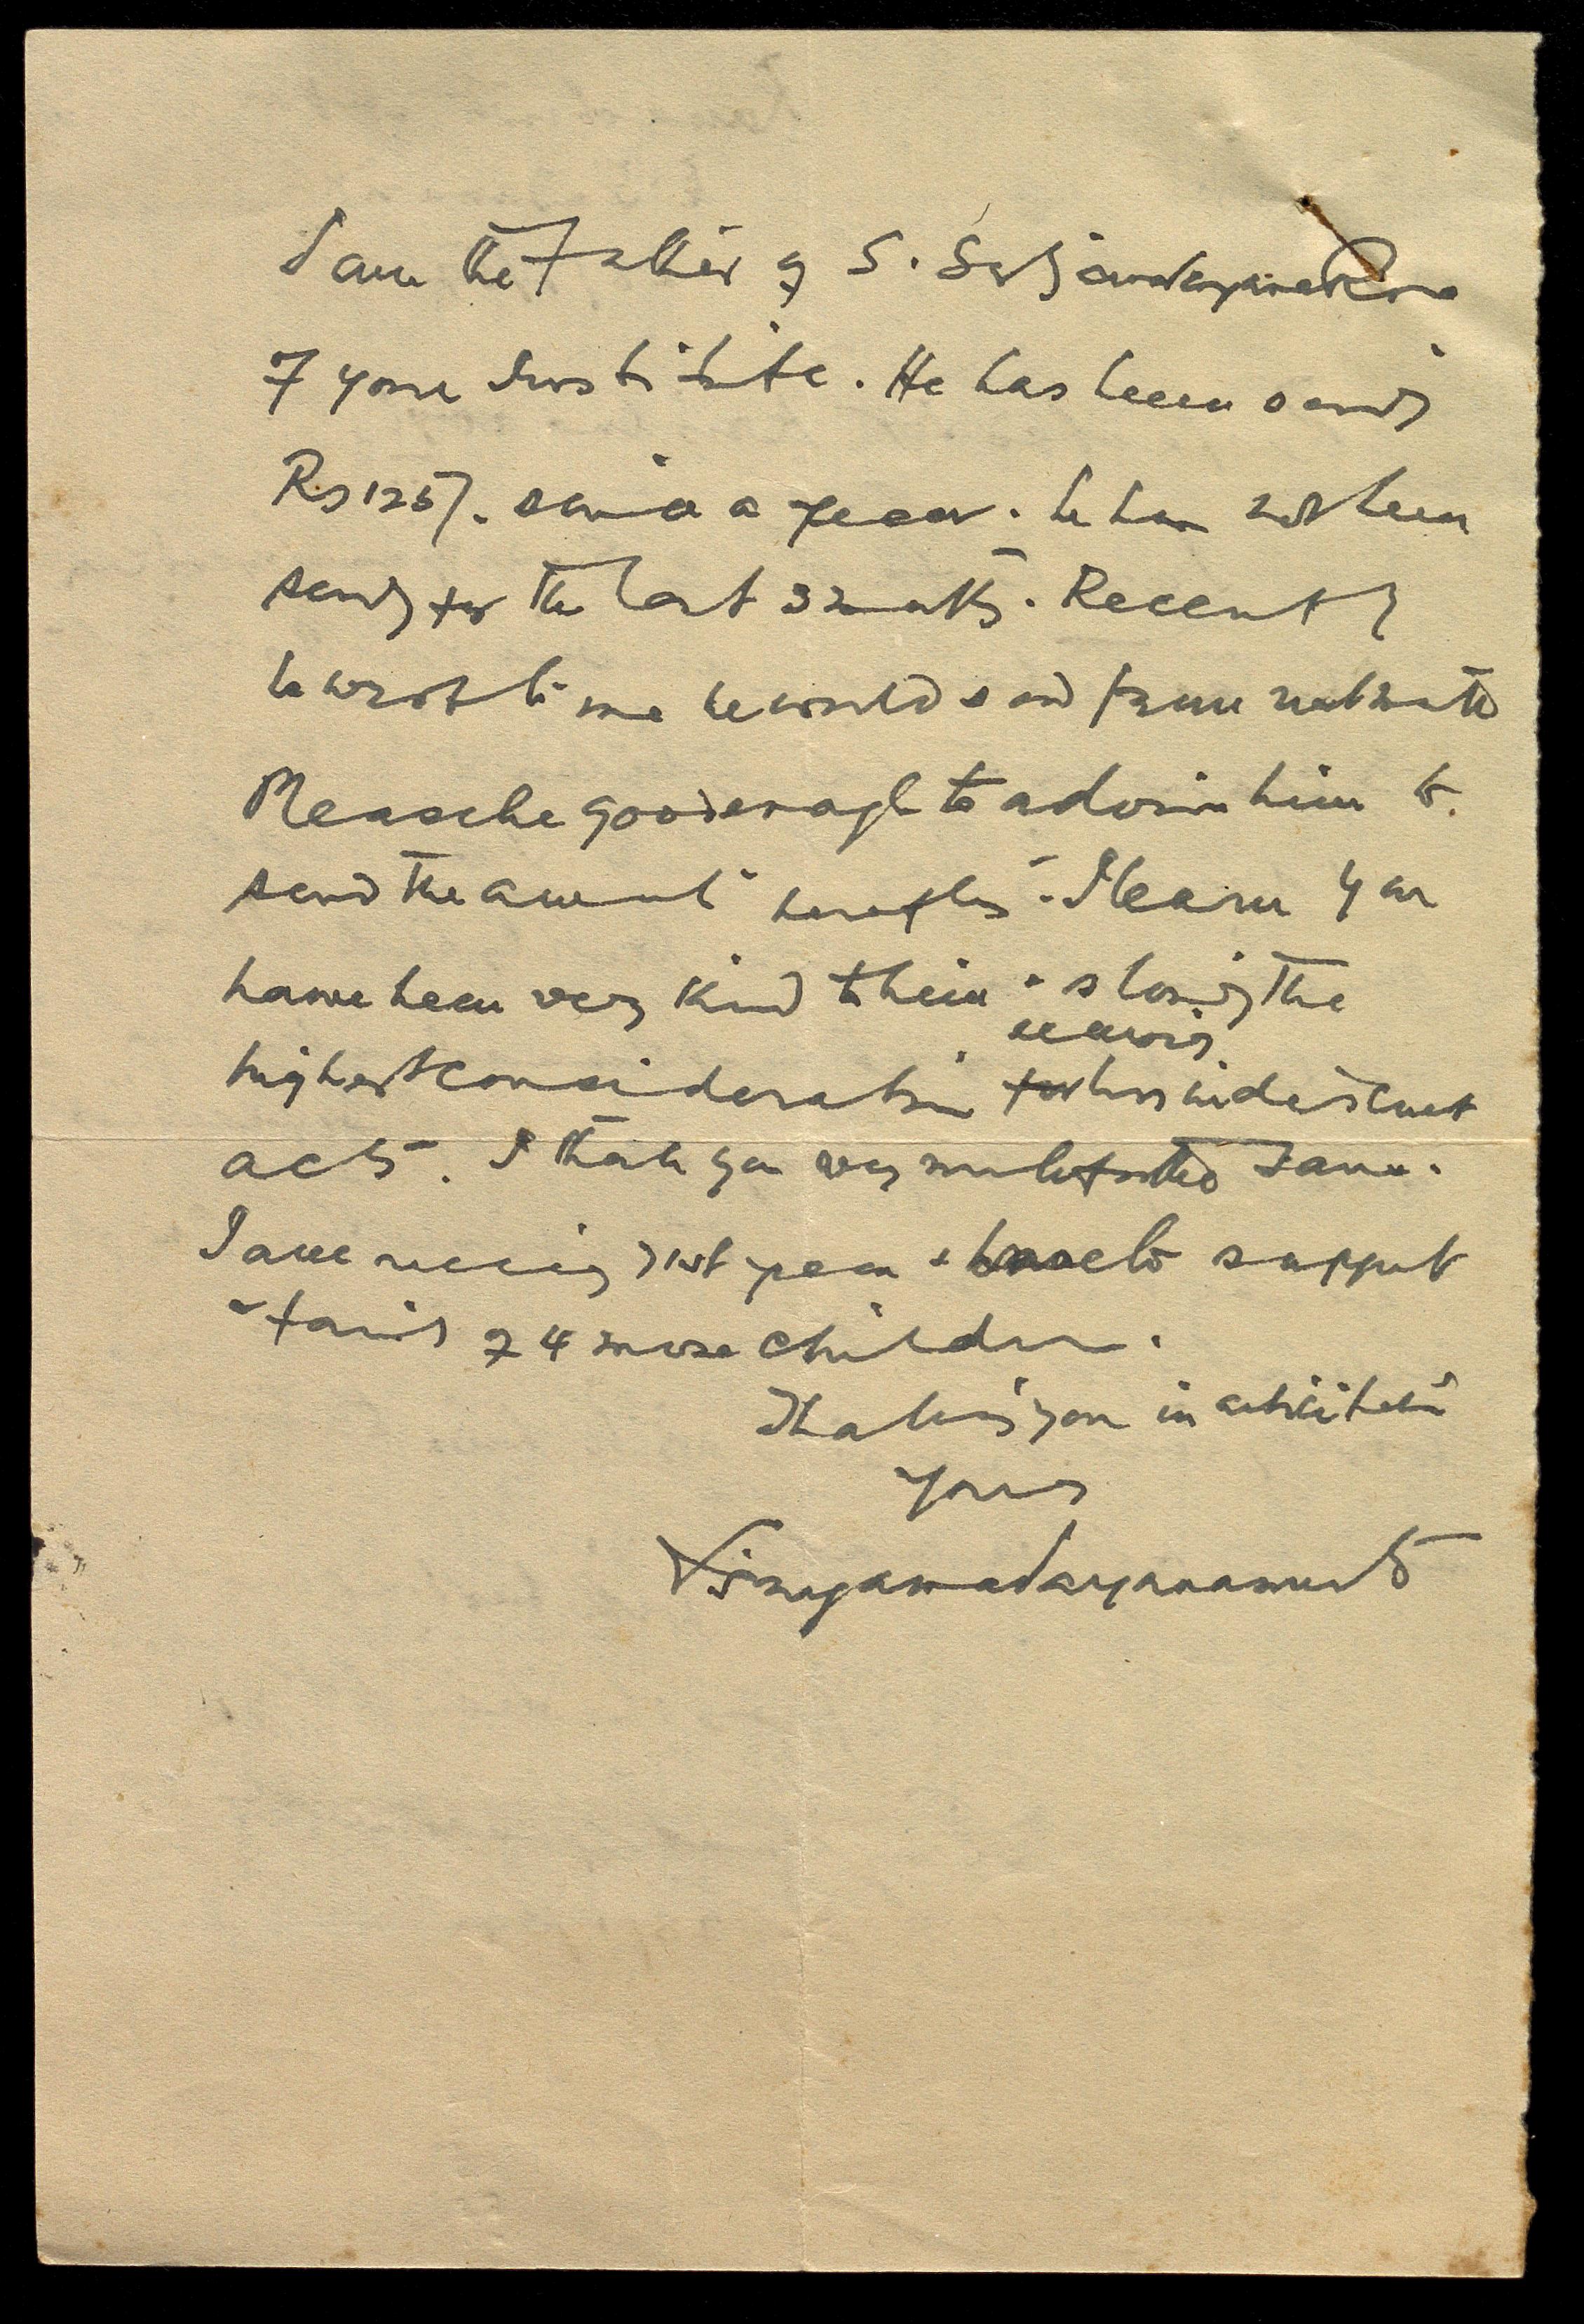 I am the Father of S. Satyanarayana
of your Institute. He has been sending
Rs 125/- since a year. he has not been
sending for the last 3 months. Recently
he wrote to me he would send from next month
Please be good enough to advise him to
send the amount hereafter. I learn you
have been very kind to him showing the
highest consideration for his indecent
acts. I thank you very much for the same.
I am running 71st year & have to support
a family of 4 more children.
Thanking you in anticipation
Yours